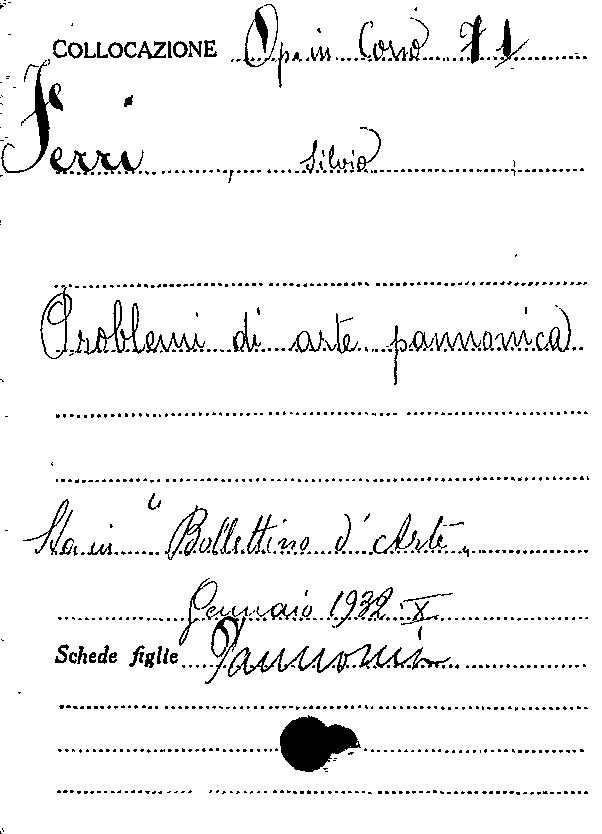 COLLOCAZIONE Op. in Corso 71
Ferri, Silvio
Problemi di arte pannonica
Sta in "Bollettino d'Arte"
Gennaio 1932 X
Schede figlie Pannonia